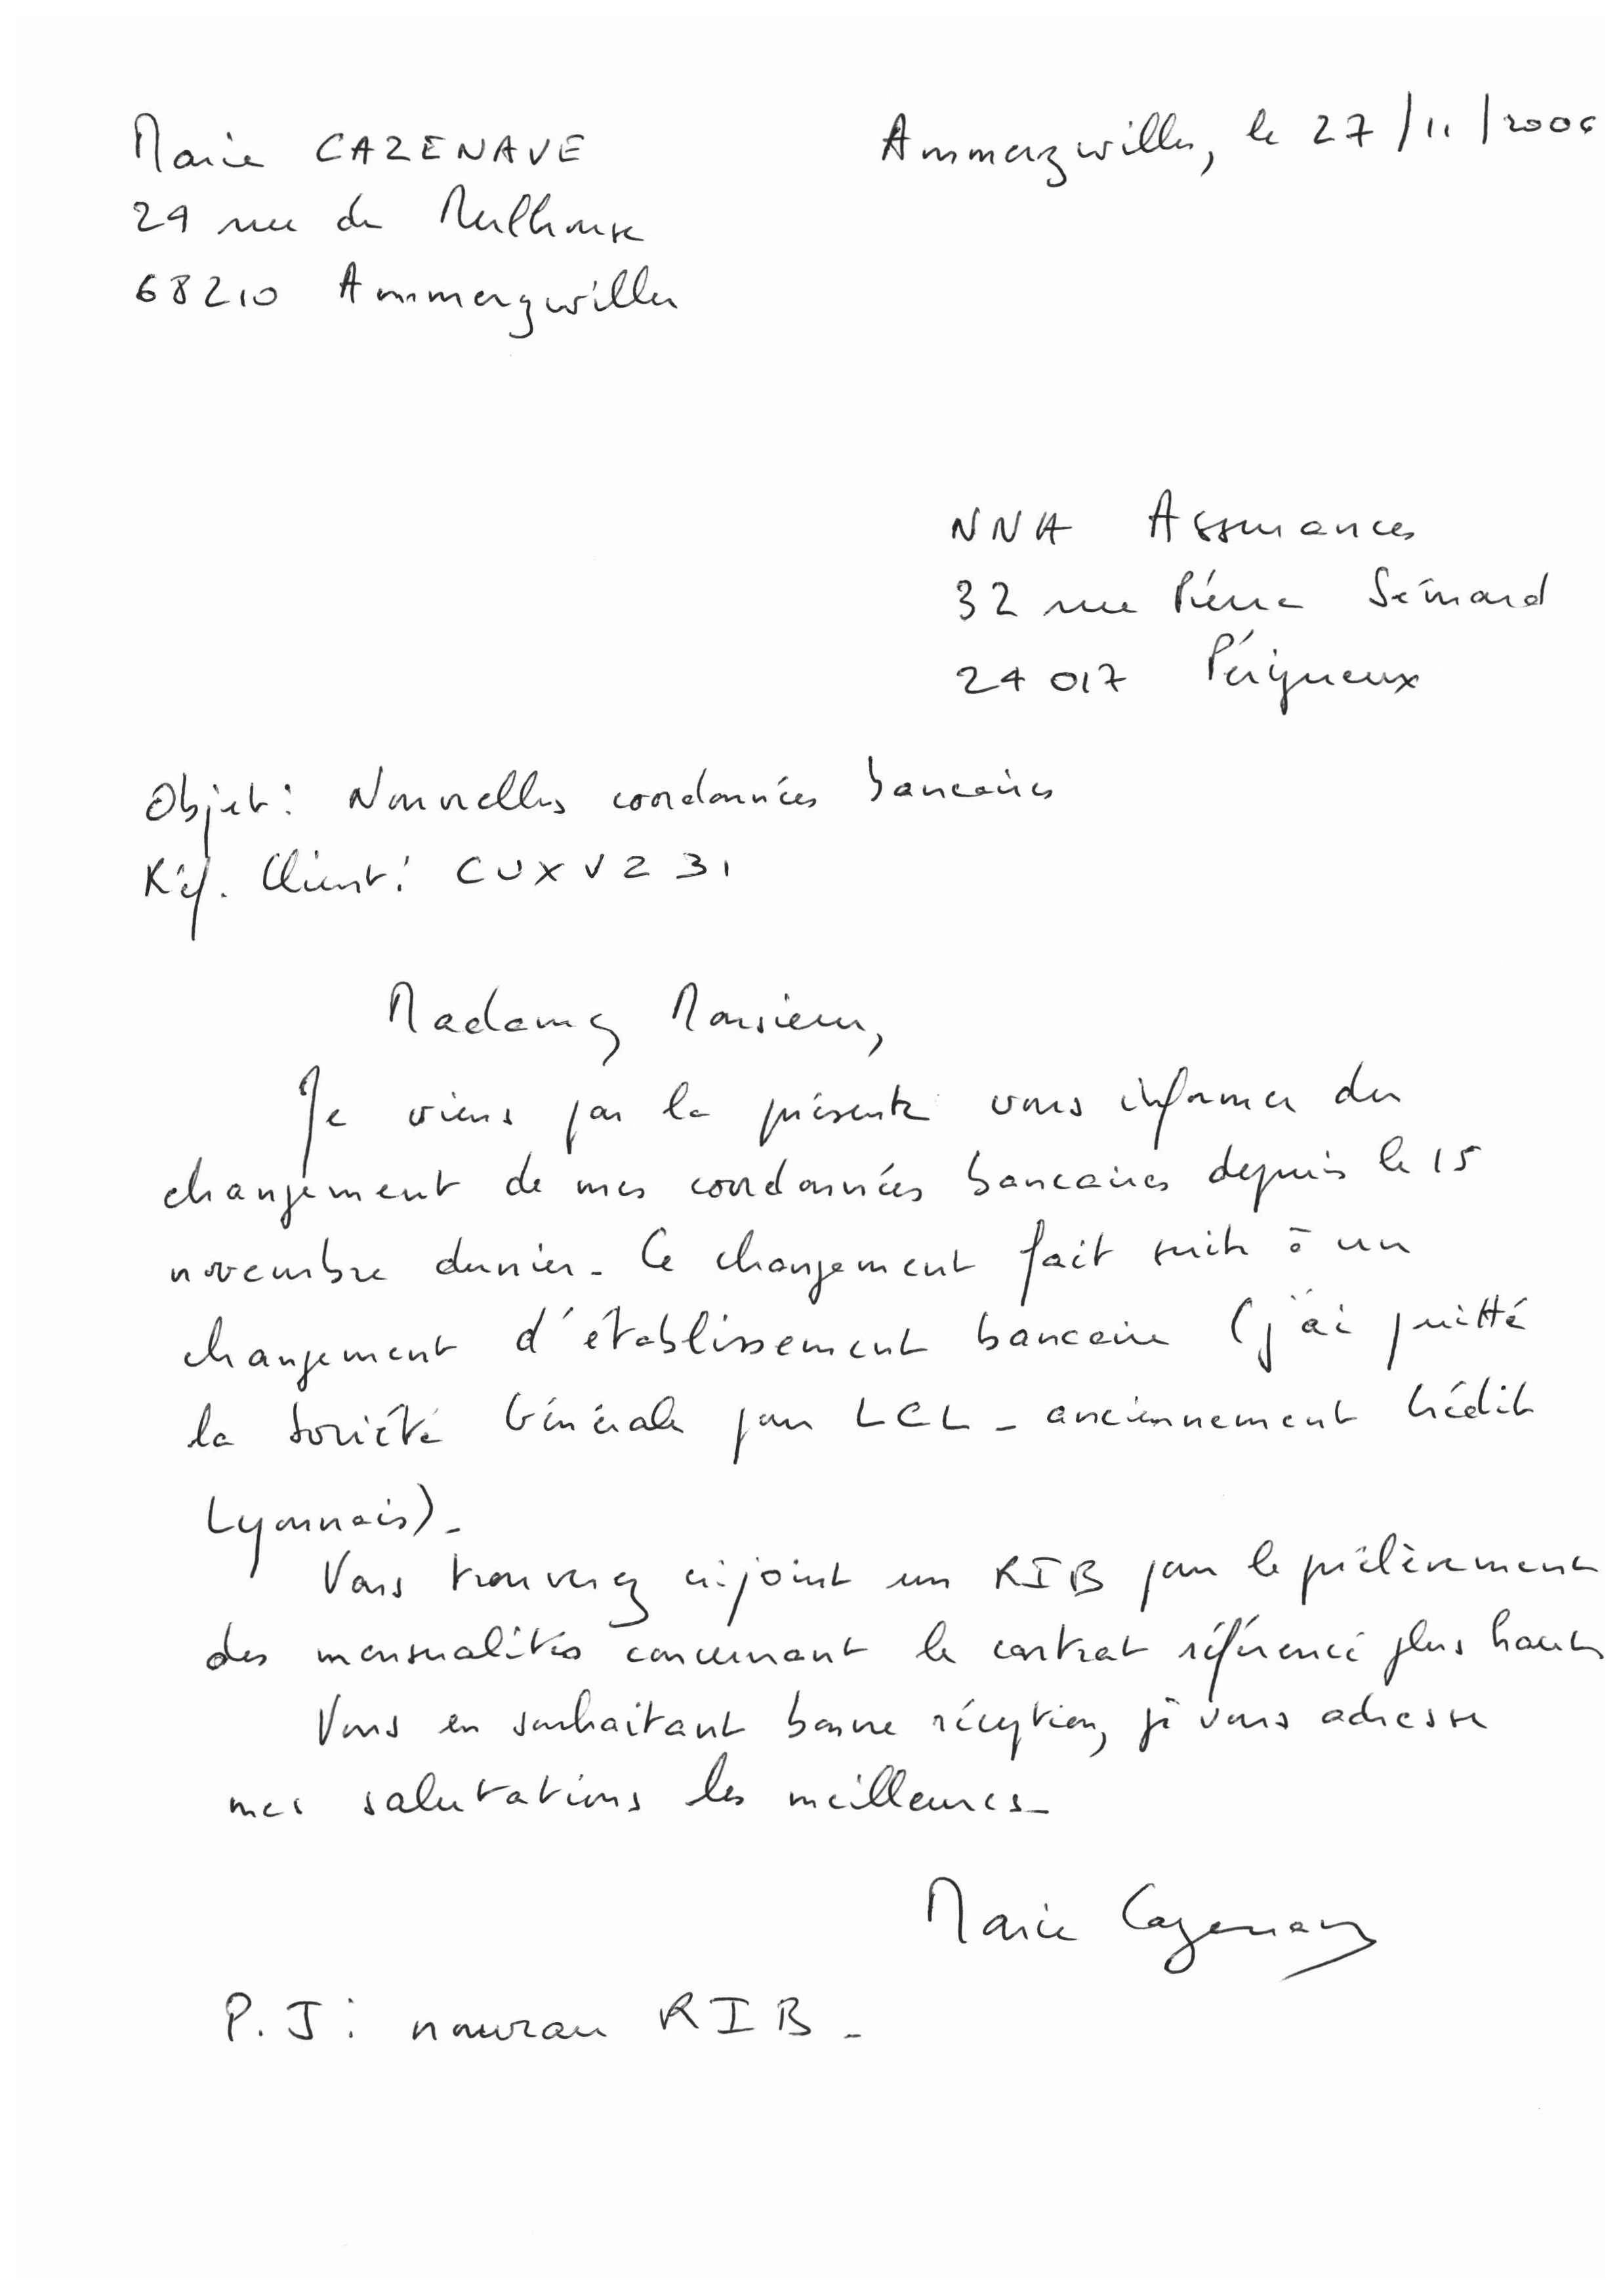 Marie CAZENAVE
Ammerzwiller, le 27/11/2006
29 rue de Mulhouse
68210 Ammerzwiller
NNA Assurances
32 rue Pierre Sémard
24017 Périgueux
Objet : Nouvelles coordonnées bancaires
Réf. Client : CUXVZ31
Madame, Monsieur,
Je viens par la présente vous informer du
changement de mes coordonnées bancaires depuis le 15
novembre dernier. Ce changement fait suite à un
changement d'établissement bancaire (j'ai quitté
la Société Générale pour LCL - anciennement Crédit
Lyonnais).
Vous trouverez ci-joint un RIB pour le prélèvement
des mensualités concernant le contrat référencé plus haut.
Vous en souhaitant bonne réception, je vous adresse
mes salutations les meilleures.
Marie Cazenave
P.J : nouveau RIB.